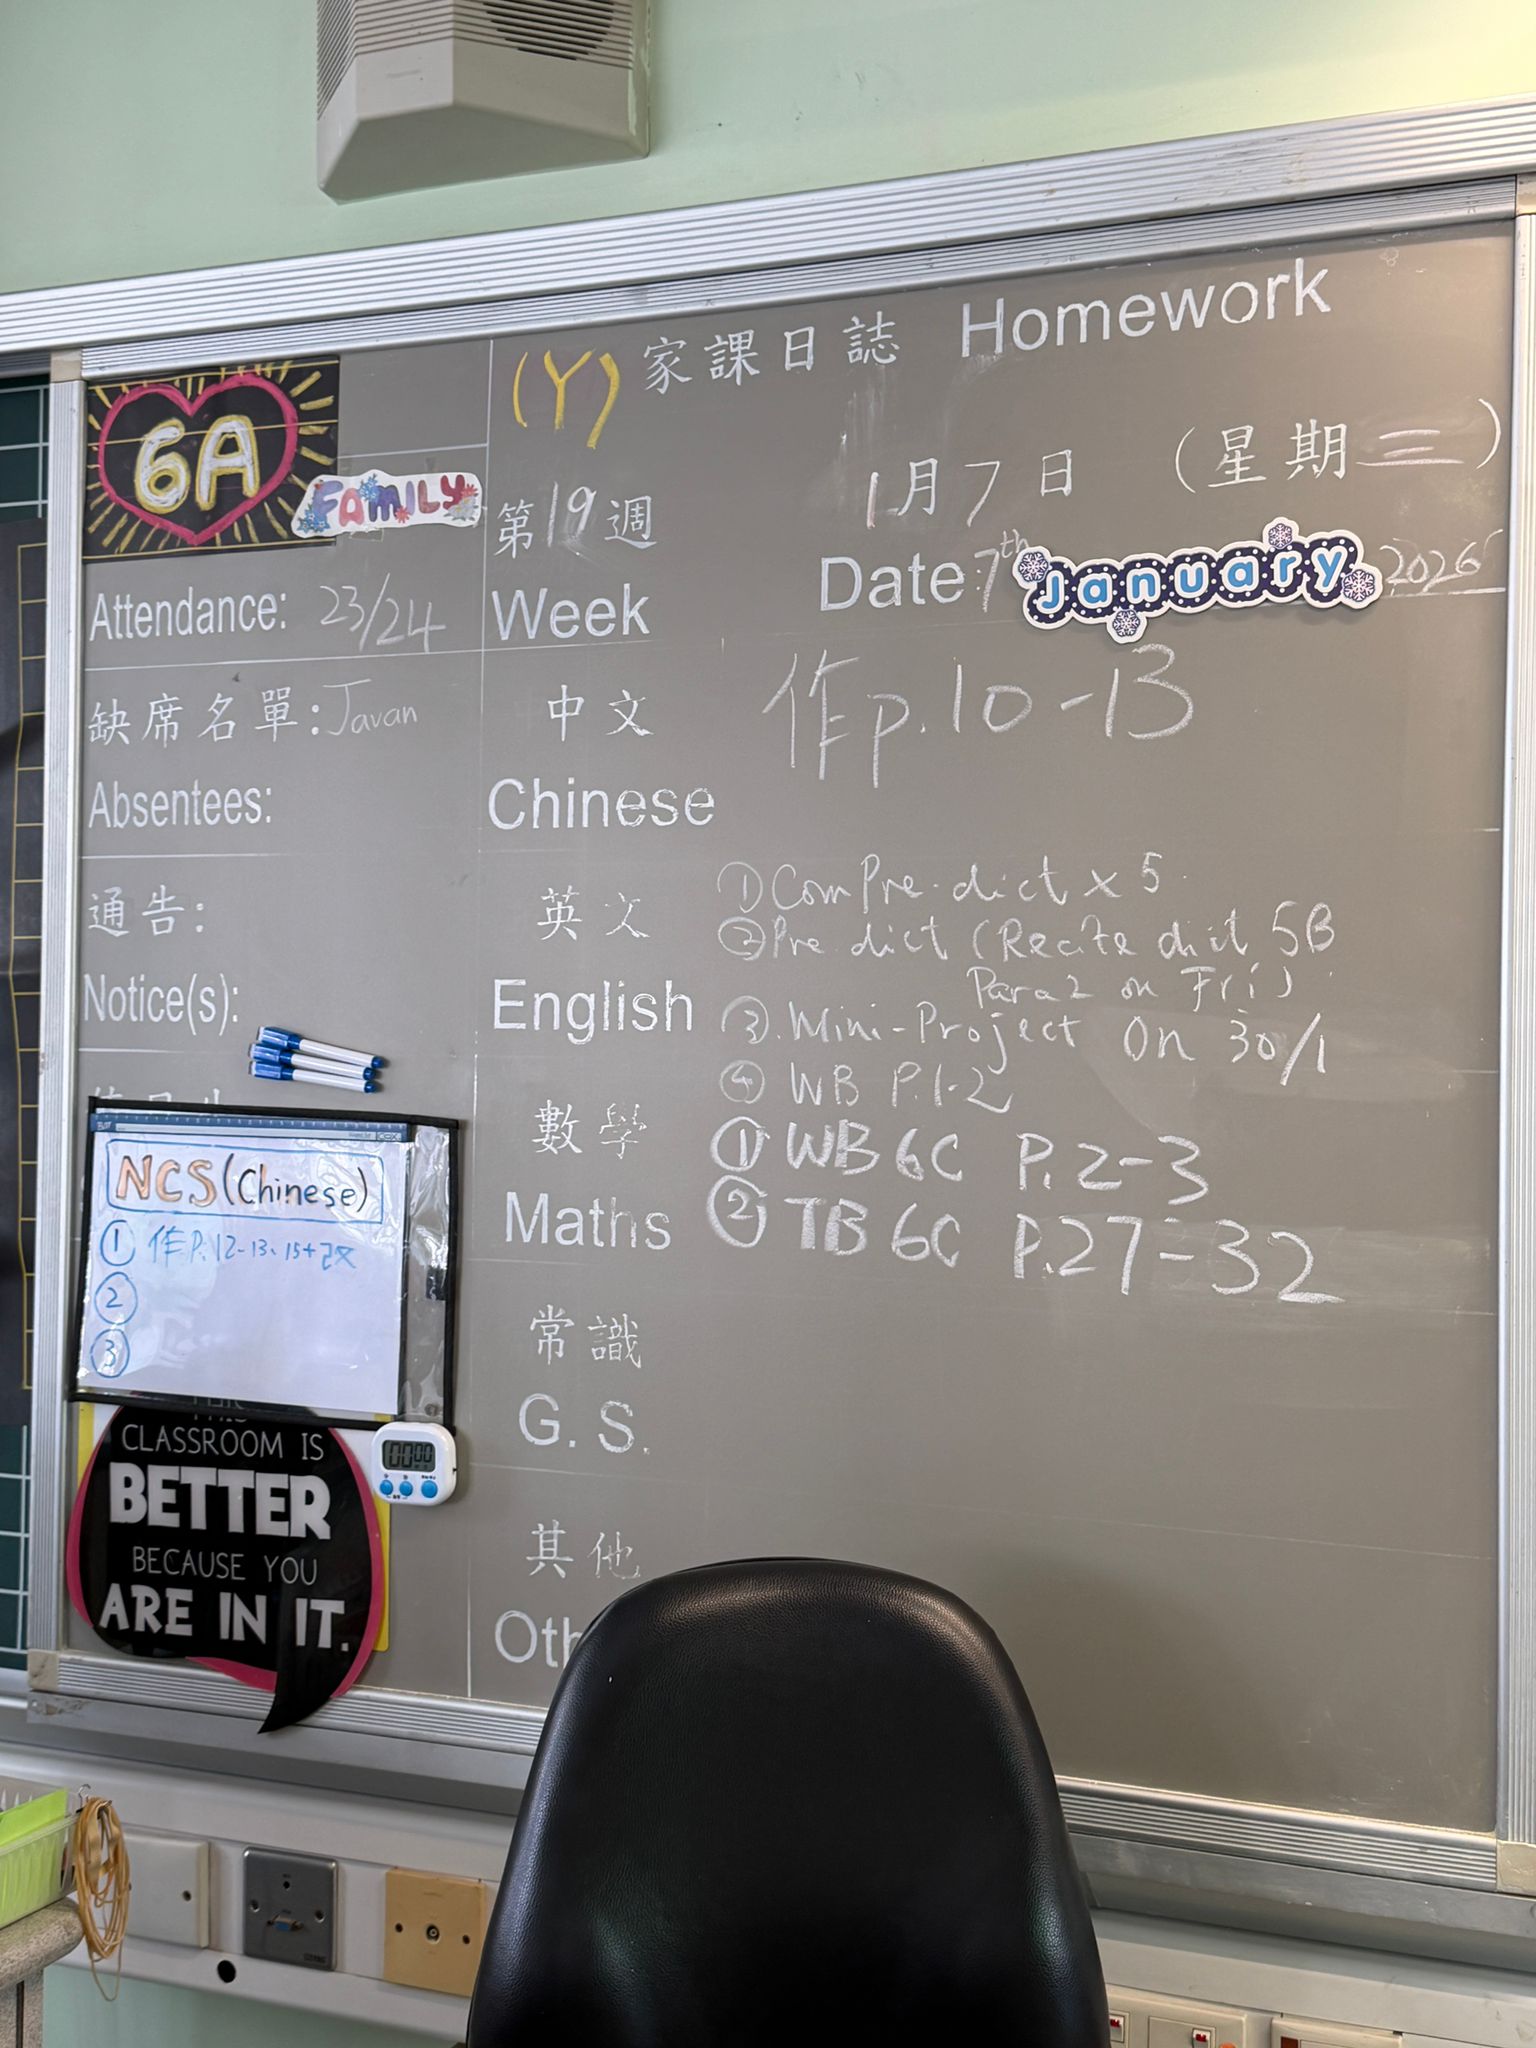 (Y) 家課日誌 Homework
6A
FAMILY
第19週
1月7日 (星期三)
Week
Date 7th January 2026
Attendance: 23/24
缺席名單: Javan
Absentees:
通告:
Notice(s):
中文
Chinese
作p.10-13
英文
English
① Com Pre. dict x 5
② Pre. dict (Recite dict 5B
Para 2 on Fri)
③. Mini-Project on 30/1
④ WB P.1-2
數學
Maths
① WB 6C P.2-3
② TB 6C P.27-32
常識
G.S.
其他
Oth
NCS(Chinese)
① 作P.12-13、15+改
②
③
THIS
CLASSROOM IS
BETTER
BECAUSE YOU
ARE IN IT.
00 00